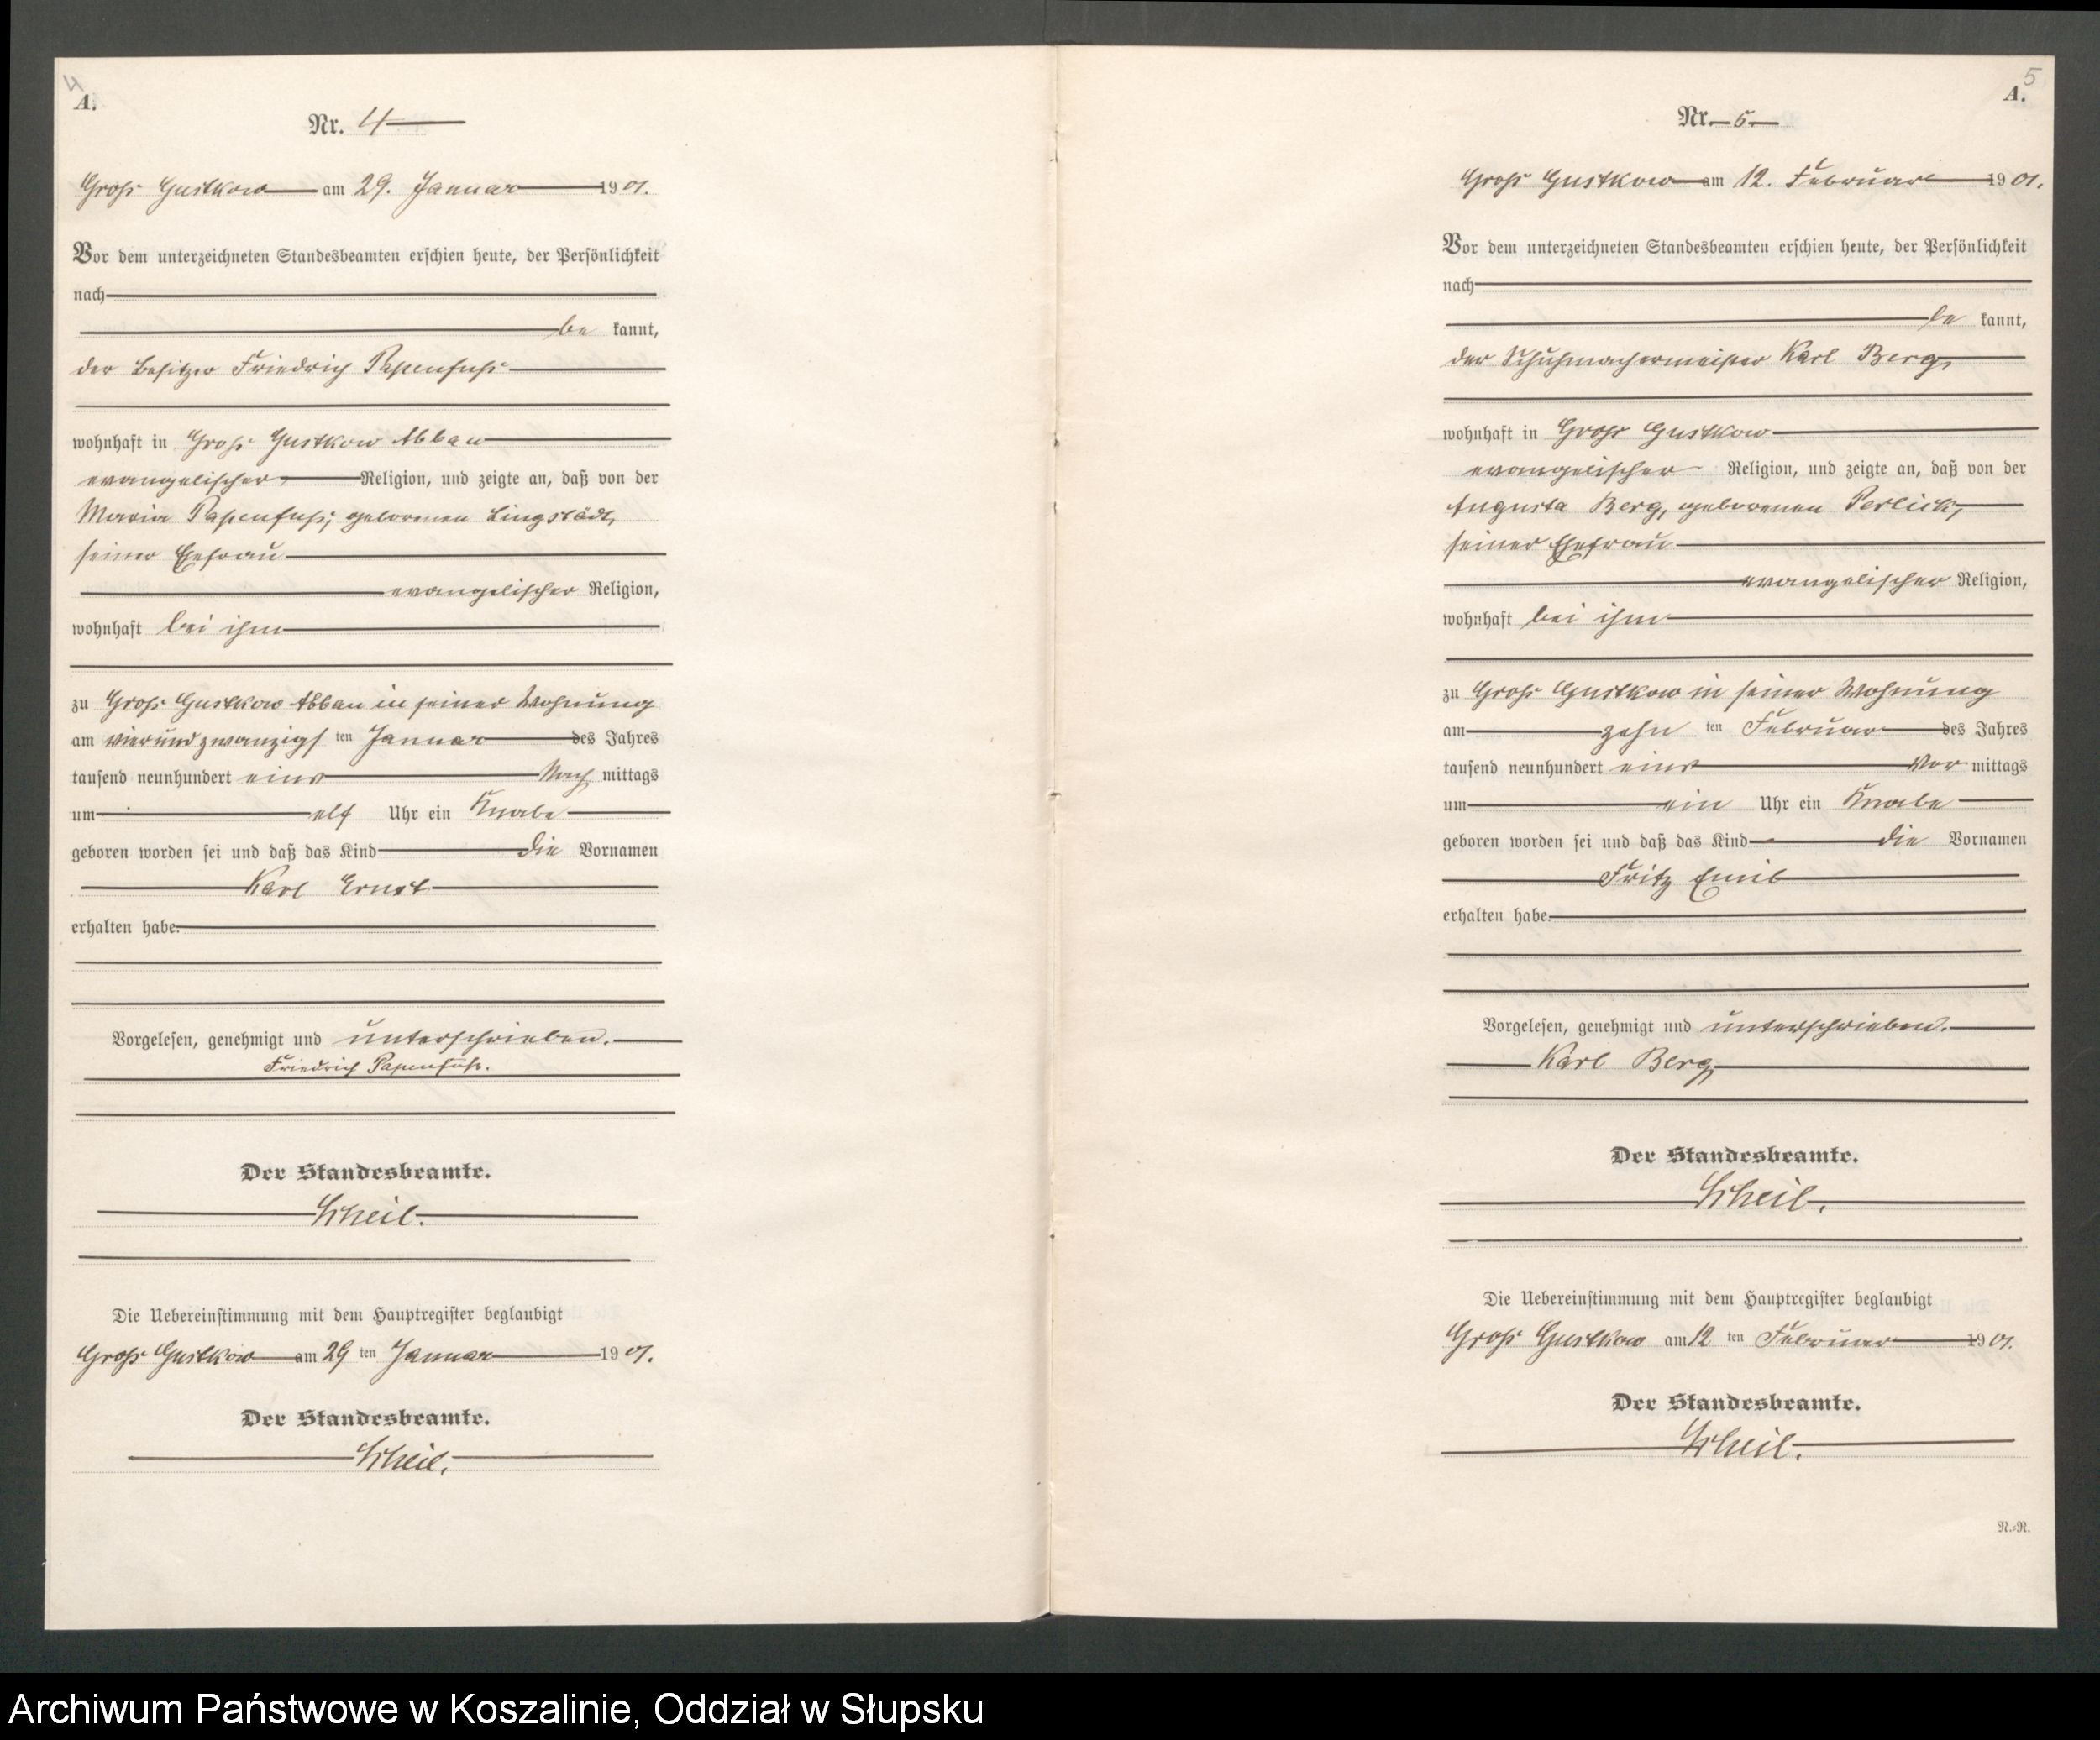 4
A.
Nr. 4
Groß Gustkow am 29. Januar 1901.
Vor dem unterzeichneten Standesbeamten erschien heute, der Persönlichkeit
nach
be kannt,
der Besitzer Friedrich Papenfuß
wohnhaft in Groß Gustkow Abbau
evangelischer Religion, und zeigte an, daß von der
Maria Papenfuß, geborenen Lingstädt,
seiner Ehefrau
evangelischer Religion,
wohnhaft bei ihm
zu Groß Gustkow Abbau in seiner Wohnung
am vierundzwanzigs ten Januar des Jahres
tausend neunhundert eins Nach mittags
um elf Uhr ein Knabe
geboren worden sei und daß das Kind die Vornamen
Karl Ernst
erhalten habe.
Vorgelesen, genehmigt und unterschrieben.
Friedrich Papenfuß.
Der Standesbeamte.
Scheil.
Die Uebereinstimmung mit dem Hauptregister beglaubigt
Groß Gustkow am 29 ten Januar 1901.
Der Standesbeamte.
Scheil.
5
A.
Nr. 5.
Groß Gustkow am 12. Februar 1901.
Vor dem unterzeichneten Standesbeamten erschien heute, der Persönlichkeit
nach
be kannt,
der Schuhmachermeister Karl Berg,
wohnhaft in Groß Gustkow
evangelischer Religion, und zeigte an, daß von der
Augusta Berg, geborenen Perlick,
seiner Ehefrau
evangelischer Religion,
wohnhaft bei ihm
zu Groß Gustkow in seiner Wohnung
am zehn ten Februar des Jahres
tausend neunhundert eins Vor mittags
um ein Uhr ein Knabe
geboren worden sei und daß das Kind die Vornamen
Fritz Emil
erhalten habe.
Vorgelesen, genehmigt und unterschrieben.
Karl Berg
Der Standesbeamte.
Scheil.
Die Uebereinstimmung mit dem Hauptregister beglaubigt
Groß Gustkow am 12 ten Februar 1901.
Der Standesbeamte.
Scheil.
N.=R.
Archiwum Państwowe w Koszalinie, Oddział w Słupsku